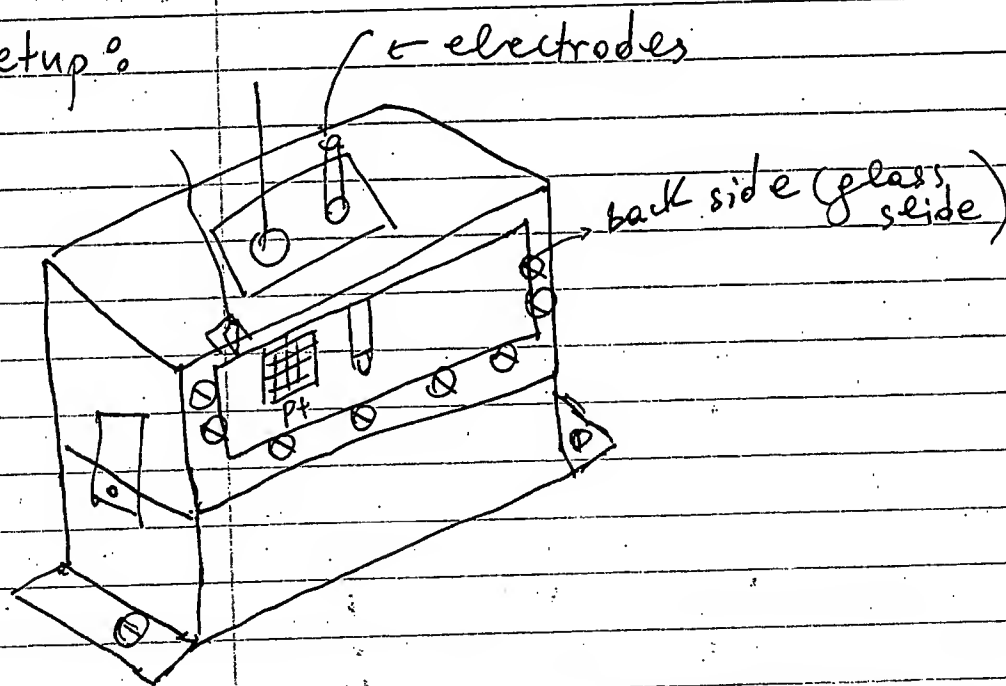 etup:
← electrodes
back side (glass
slide)
Pt